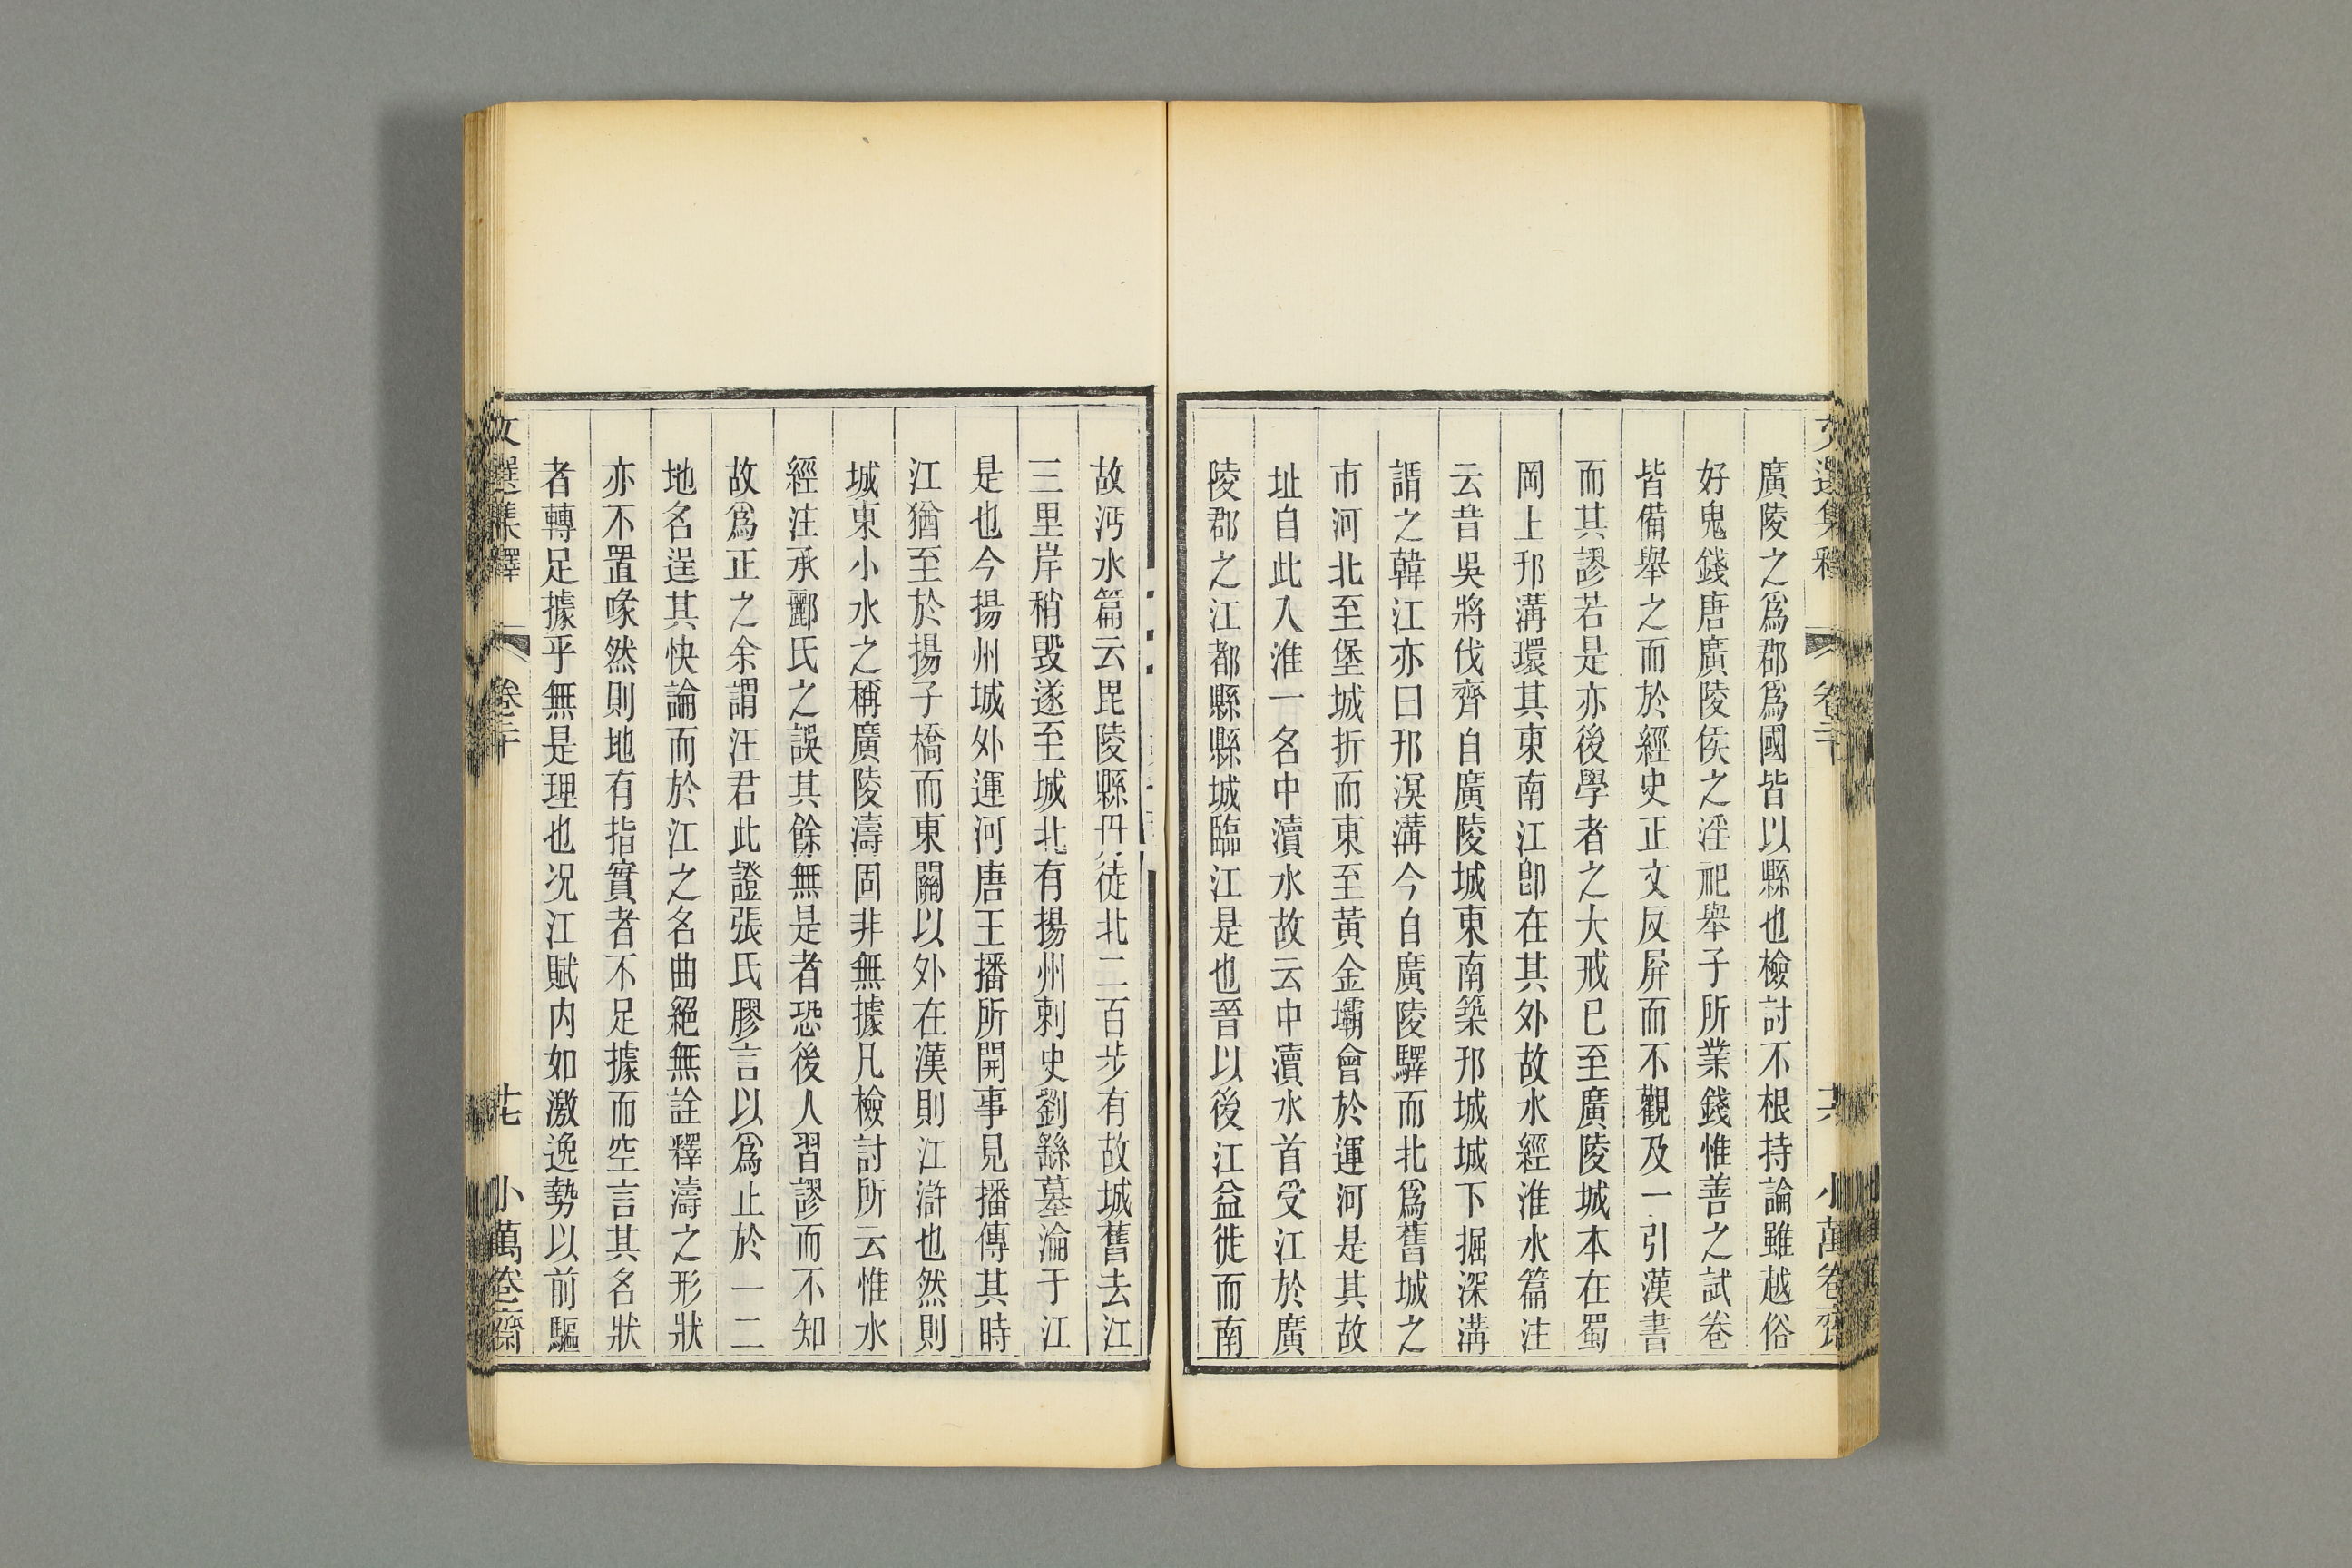 廣陵之爲郡爲國皆以縣也檢討不根持論雖越俗
好鬼錢唐廣陵侯之淫祀舉子所業錢惟善之試卷
皆備舉之而於經史正文反屏而不觀及一引漢書
而其謬若是亦後學者之大戒已至廣陵城本在蜀
岡上邗溝環其東南江卽在其外故水經淮水篇注
云昔吳將伐齊自廣陵城東南築邗城城下掘深溝
謂之韓江亦曰邗溟溝今自廣陵驛而北爲舊城之
市河北至堡城折而東至黃金壩會於運河是其故
址自此入淮一名中瀆水故云中瀆水首受江於廣
陵郡之江都縣縣城臨江是也晉以後江益徙而南
故沔水篇云毘陵縣丹徒北二百步有故城舊去江
三里岸稍毀遂至城北有揚州刺史劉繇墓淪于江
是也今揚州城外運河唐王播所開事見播傳其時
江猶至於揚子橋而東關以外在漢則江滸也然則
城東小水之稱廣陵濤固非無據凡檢討所云惟水
經注承酈氏之誤其餘無是者恐後人習謬而不知
故爲正之余謂汪君此證張氏膠言以爲止於一二
地名逞其快論而於江之名曲絕無詮釋濤之形狀
亦不置喙然則地有指實者不足據而空言其名狀
者轉足據乎無是理也況江賦內如激逸勢以前驅
文選集釋
卷二十
芒
小萬卷齋